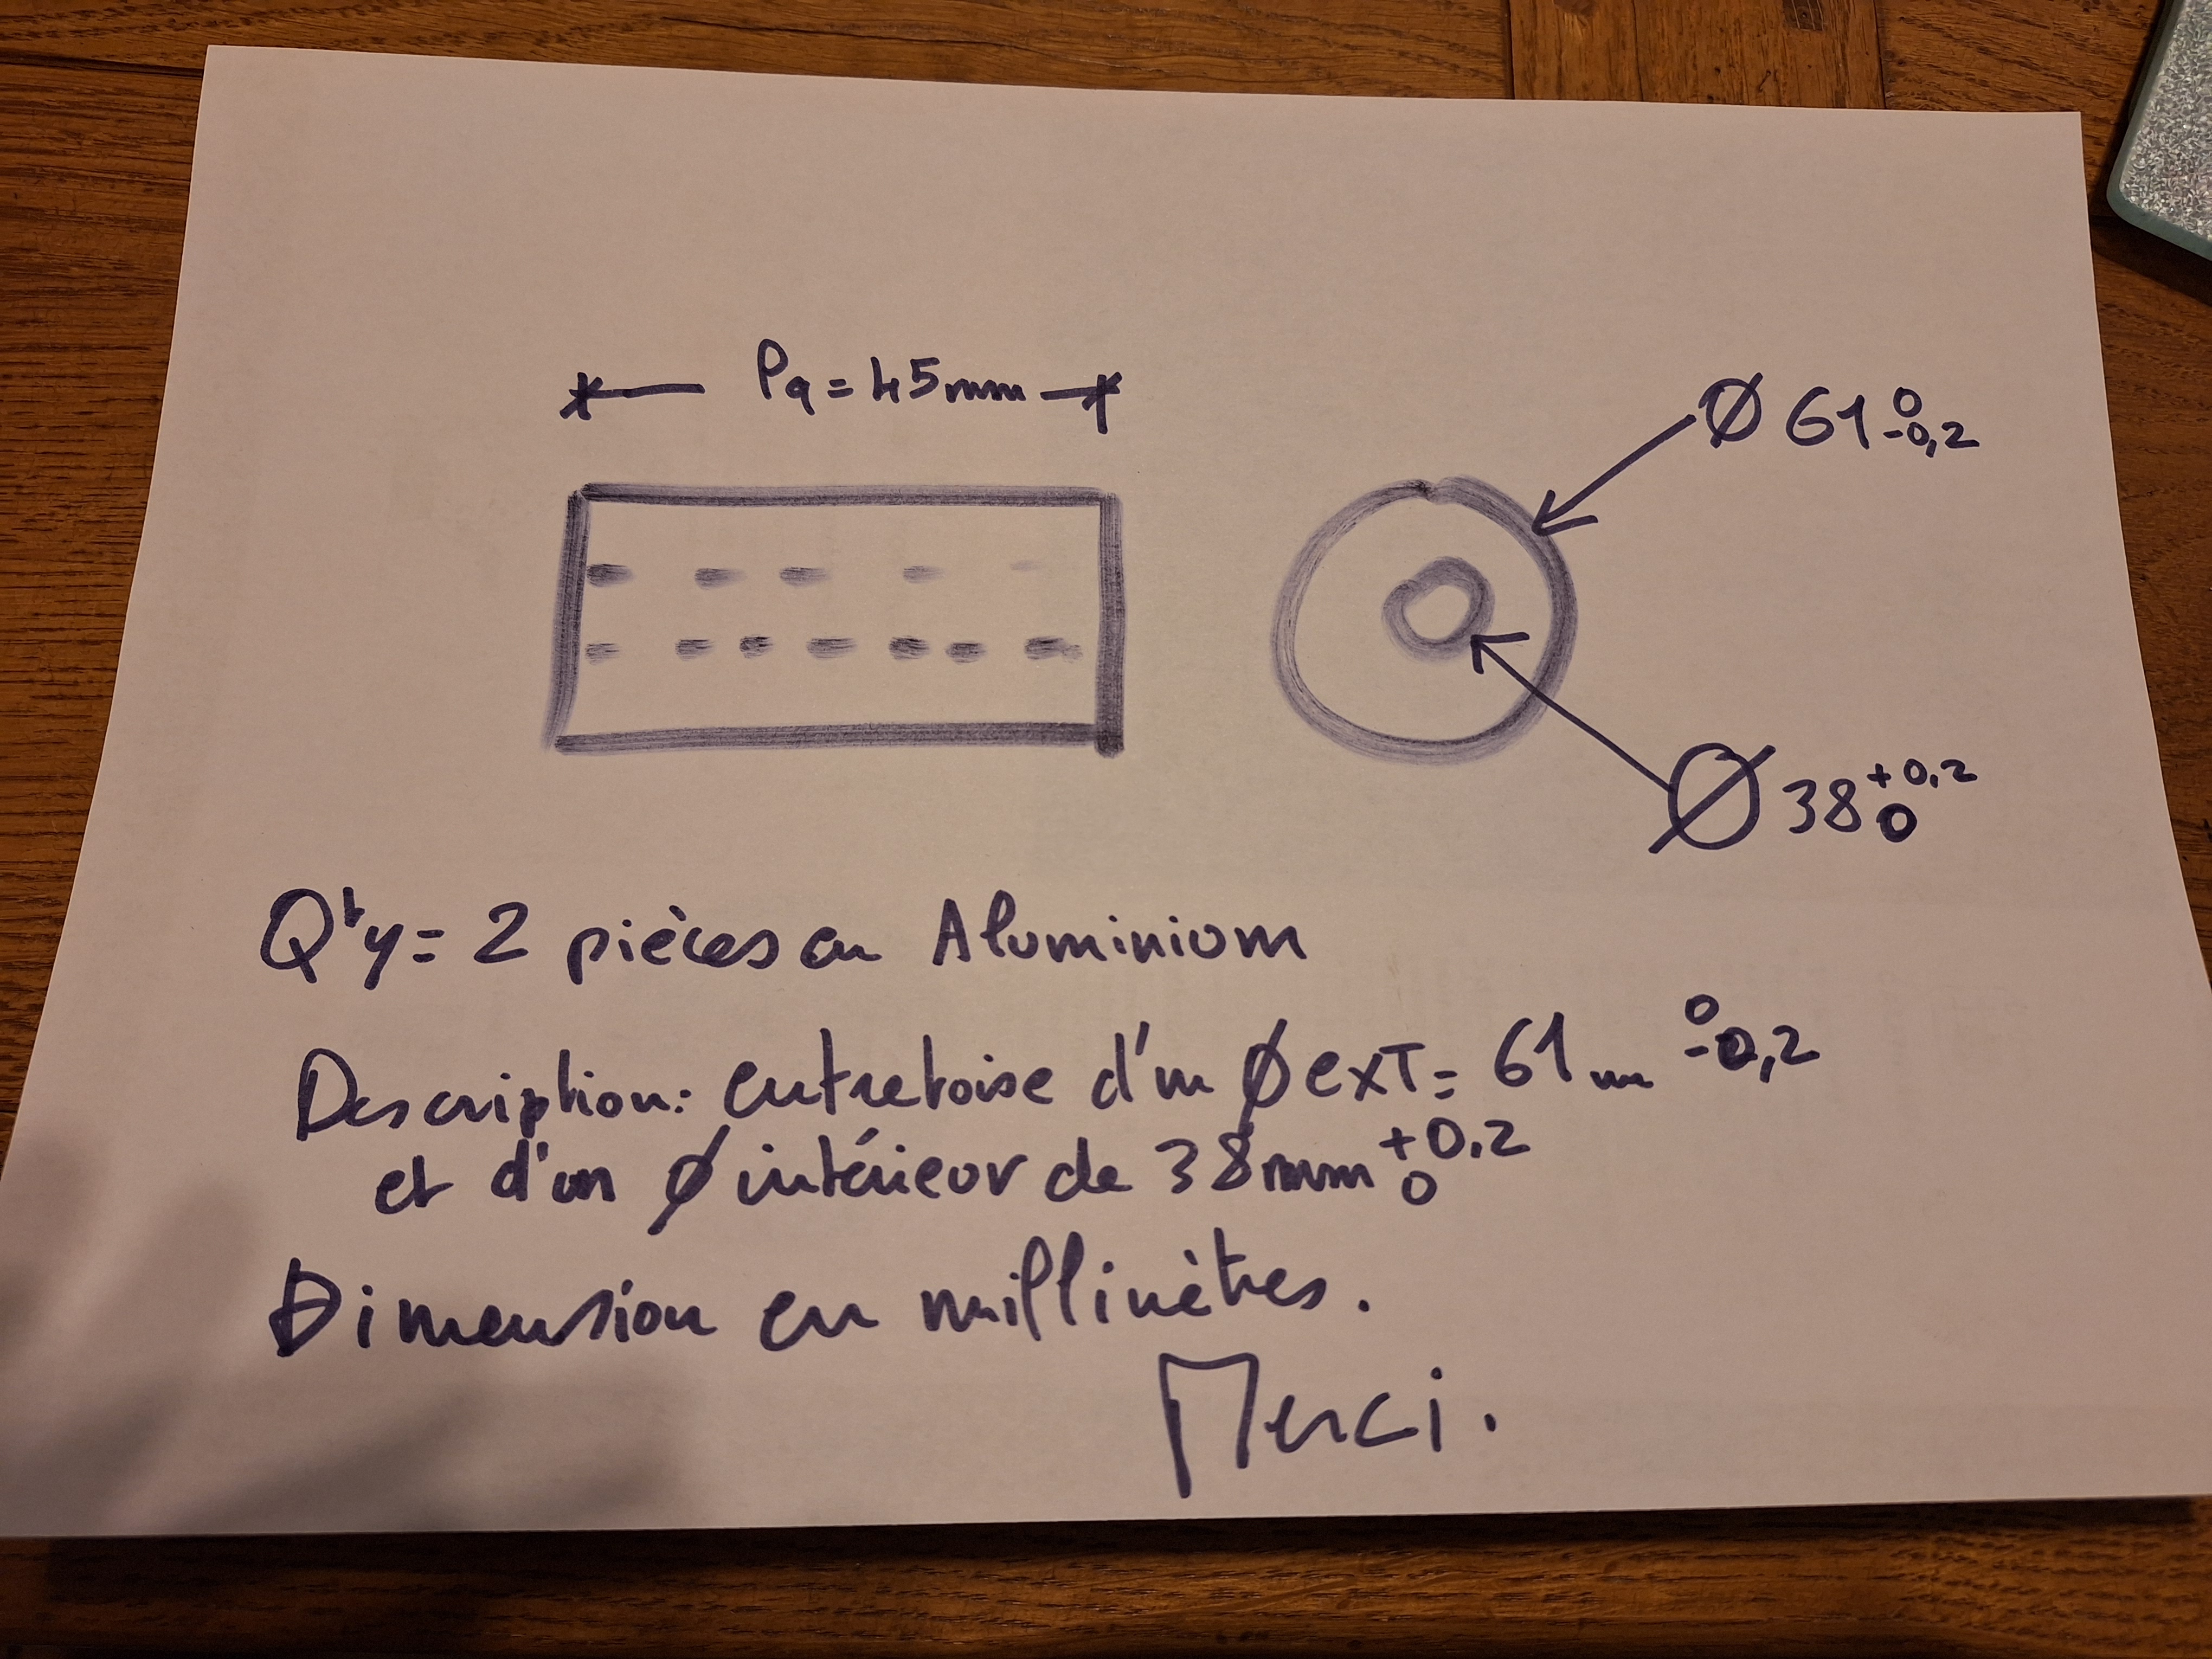 Pq = 45mm
Ø 61 0 -0,2
Ø 38 +0,2 0
Qty = 2 pièces en Aluminium
Description: entretoise d'un Ø EXT = 61mm 0 -0,2
et d'un Ø intérieur de 38mm +0,2 0
Dimension en millimètres.
Merci.